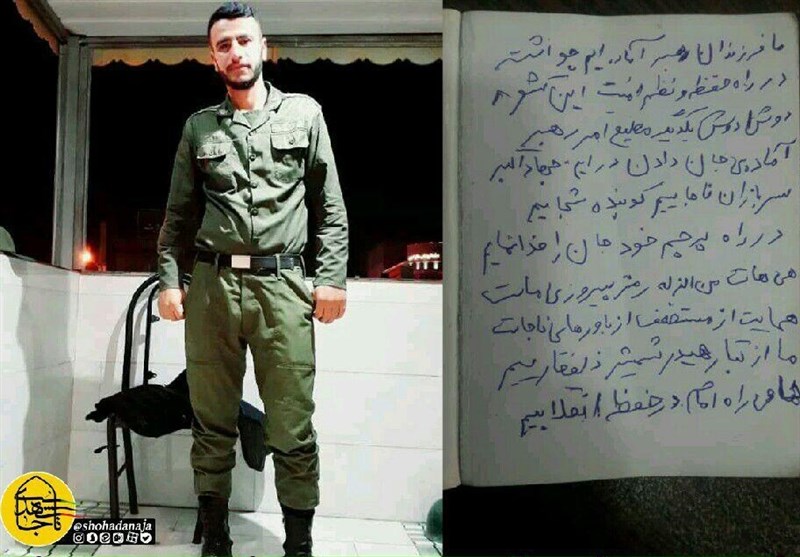 ما فرزندان رهبر آماده ایم چو آتشه
در راه حفظ و نظم امنیت این کشور
دوش ا دوش یکدیگه مطیع امر رهبر
آماده‌ی جان دادن در این جهاد اکبر
سربازان ناجاییم کوبنده شجاییم
در راه پرچم خود جان را فدا نماییم
هی هات من الذله رمز پیروزی ماست
حمایت از مستضعف از باورهای ناجاست
ما از تبار حیدر شمشیر ذلفقاریم
حامی راه امام در حفظ انقلابیم
@shohadanaja